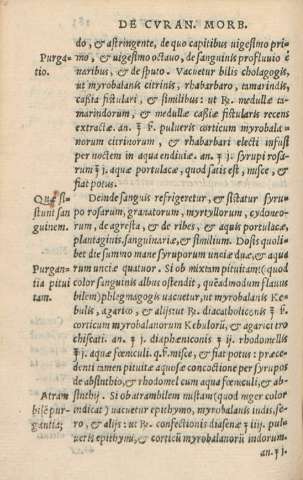 DE CVRAN. MORB.
do, & astringente, de quo capitibus uigesimo pri-
Purga- mo, & uigesimo octauo, de sanguinis profluuio è
tio. naribus, & de sputo. Vacuetur bilis cholagogis,
ut myrobalanis citrinis, rhabarbaro, tamarindis,
caßia fistulari, & similibus: ut ℞. medullæ ta-
marindorum, & medullæ caßiæ fistularis recens
extractæ. an. ℥ ß. pulueris corticum myrobala-
norum citrinorum, & rhabarbari electi infusi
per noctem in aqua endiuiæ. an. ʒ j. syrupi rosa-
rum ℥ j. aquæ portulacæ, quod satis est, misce, &
fiat potus.
Quæ si- Deinde sanguis refrigeretur, & sistatur syru-
stunt san po rosarum, granatorum, myrtyllorum, cydoneo-
guinem. rum, de agresta, & de ribes, & aquis portulacæ,
plantaginis, sanguinariæ, & similium. Dosis quoli-
bet die summo mane syruporum unciæ duæ, & aqua
Purgan- rum unciæ quatuor. Si ob mixtam pituitam (quod
tia pitui color sanguinis albus ostendit, quēadmodum flauus
tam. bilem) phlegmagogis uacuetur, ut myrobalanis Ke-
bulis, agarico, & alijs: ut ℞. diacatholiconis ℥ ß.
corticum myrobalanorum Kebulorū, & agarici tro
chiscati. an. ʒ j. diaphœniconis ʒ ij. rhodomellis
℥ j. aquæ fœniculi. q. s. misce, & fiat potus: præce-
denti tamen pituitæ aquosæ concoctione per syrupos
de absinthio, & rhodomel cum aqua fœniculi, & ab-
Atram sinthij. Si ob atram bilem mistam (quod niger color
bilē pur- indicat) uacuetur epithymo, myrobalanis indis, se-
gantia; ro, & alijs: ut ℞. confectionis diasenæ ʒ iiij. pul-
ueris epithymi, & corticū myrobalanorū indorum.
an. ʒ j.